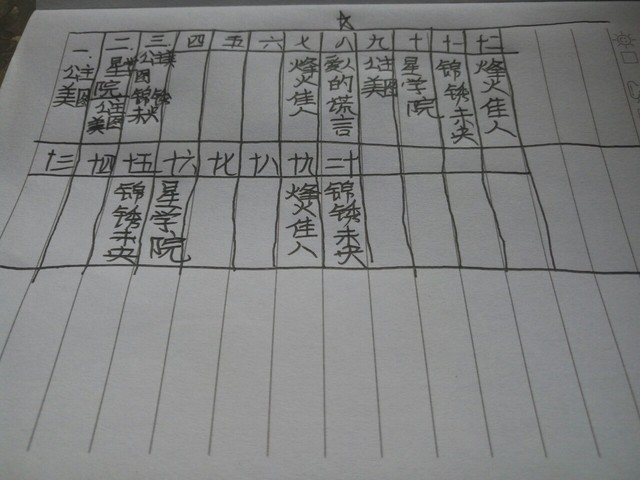 一 二 三 四 五 六 七 八 九 十 十一 十二
公主美图
星学院公主美图
公主美图锦绣未央
烽火佳人
的谎言
公主美图
星学院
锦锈未央
烽火佳人
十三 十四 十五 十六 十七 十八 十九 二十
锦锈未央
星学院
烽火佳人
锦锈未央